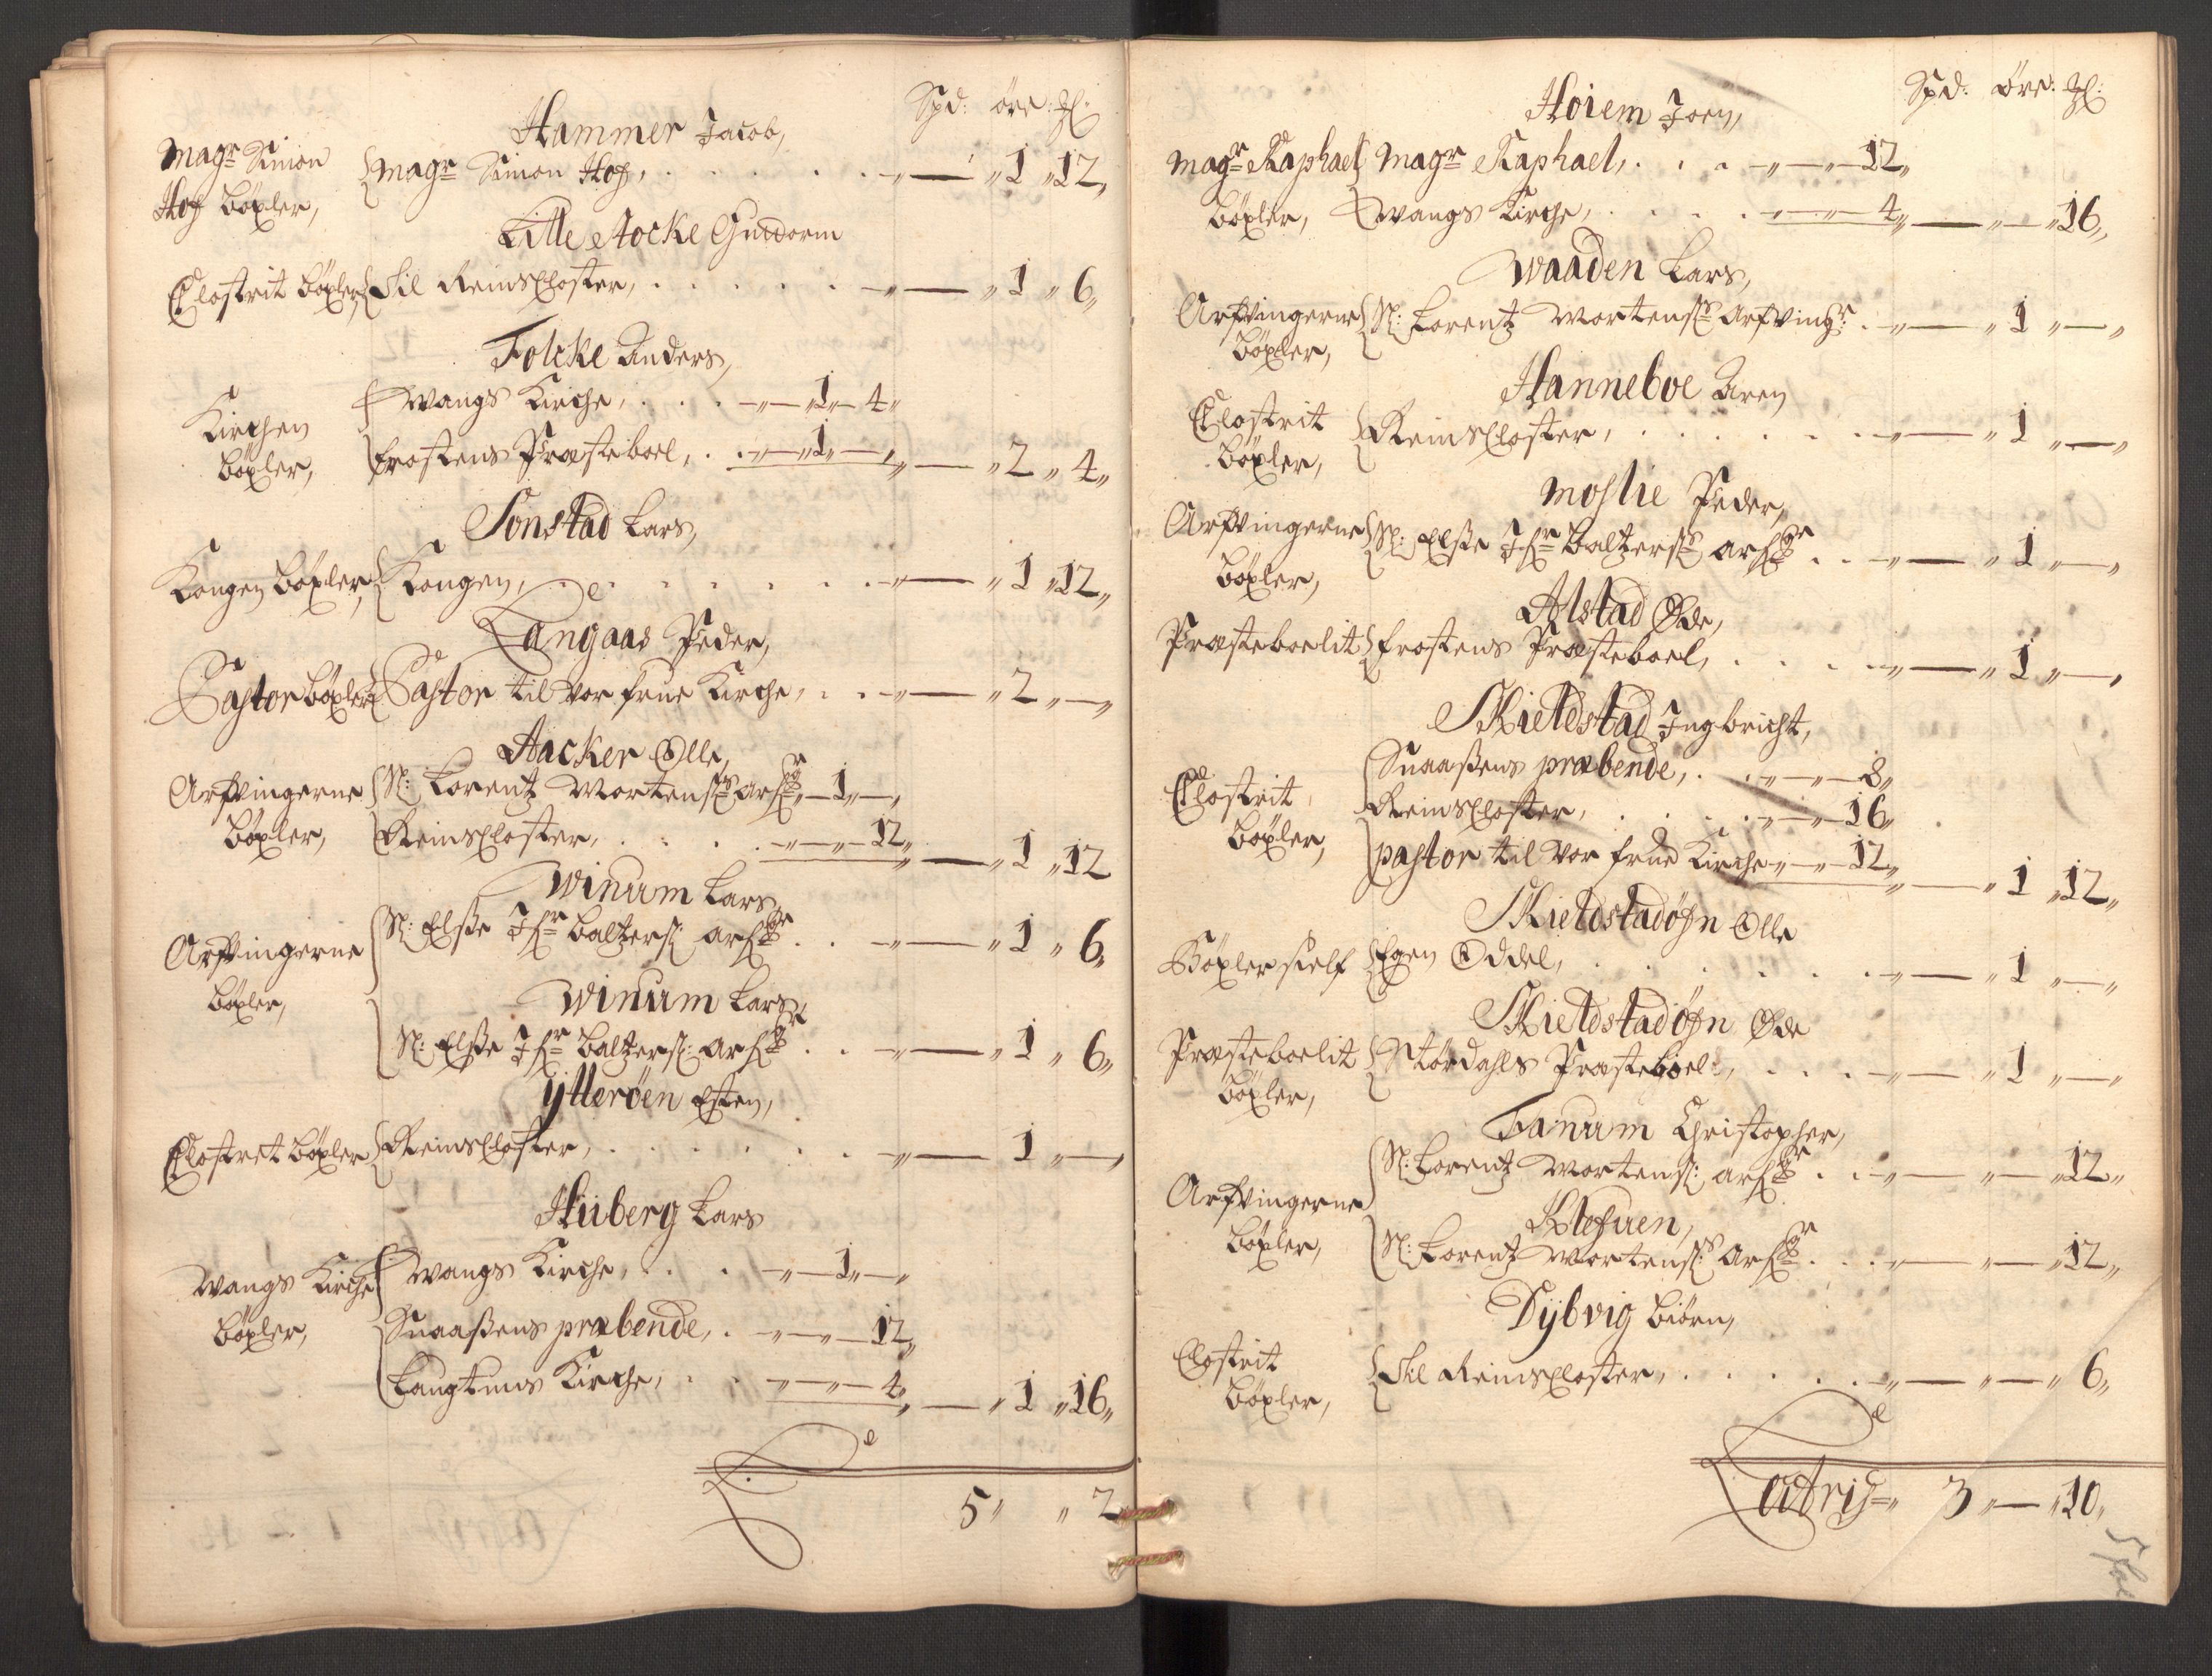 Spd: öre: 
Hammer Jacob,
Magr Simon Hof böxler, Magr Simon Hof, 1 12
Lille Aocke Gudorm
Clostrit böxler, Til Reinscloster, 1 6
Folcke Anders,
Kirchen böxler, Wangs Kirche, 1 4
frostens Præsteboel, 1 2 4
Sonstad Lars,
Kongen böxler, Kongen, 1 12
Langaas Peder,
Pastor böxler Pastor til Vor frue Kirche, 2
Aacker Olle,
Arfvingerne böxler, Sl: Lorentz Mortensns arfgr 1
Reinscloster, 12 1 12
Winum Lars
Arfvingerne böxler, Sl: Elsse Jfr Baltzers: arfgr 1 6
Winum Lars,
Sl: Elsse Jfr Baltzers: arfgr 1 6
Ytterøen Esten,
Clostret böxler Reinscloster, 1
Huberg Lars
Wangs Kirche böxler, Wangs Kirche, 1
Snaassens præbende, 12
Laugtuns Kirche, 4 1 16
5 2
Spd: öre: 
Hoiem Joen,
Magr Raphael böxler, Magr Raphael, 12
Wangs Kirche, 4 16
Waaden Lars,
Arfvingerne böxler, Sl: Lorentz Mortensns Arfvingr 1
Hanneboe Aren
Clostrit böxler, Reinscloster, 1
Moslie Peder,
Arfvingerne böxler, Sl: Elsse Jfr Baltzersns arfgr 1
Alstad Øde,
Præsteboelit frostens Præsteboel, 1
Skieldstad Ingbricht,
Clostrit böxler, Snaassens præbende, 8
Reinscloster, 16
pastor til Vor frue Kirche 12 1 12
Skieldstadøfn Olle
Böxler sielf Egen Oddel, 1
Skieldstadøfn Øde
Præsteboelit böxler, Stördahls Præsteboel, 1
Fanum Christopher,
Arfvingerne böxler, Sl: Lorentz Mortens: arfgr 12
Klefuen,
Sl: Lorentz Mortens: Arfgr 12
Dybvig Biörn,
Clostrit böxler, Til Reinscloster, 6
Latris 3 10